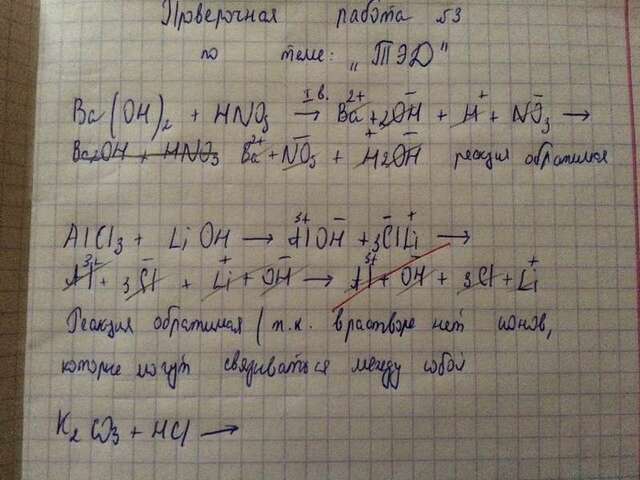 Проверочная работа №3
по теме: „ТЭД"
I в.
Ba(OH)₂ + HNO₃ → Ba²⁺ + 2OH⁻ + H⁺ + NO₃⁻ →
Ba2OH + HNO₃ Ba²⁺ + NO₃⁻ + H⁺2OH⁻ реакция обратимая
AlCl₃ + LiOH → Al³⁺OH⁻ + 3Cl⁻Li⁺ →
Al³⁺ + 3Cl⁻ + Li⁺ + OH⁻ → Al³⁺ + OH⁻ + 3Cl + Li⁺
Реакция обратимая (т.к. в растворе нет ионов,
которые могут связываться между собой
K₂CO₃ + HCl →